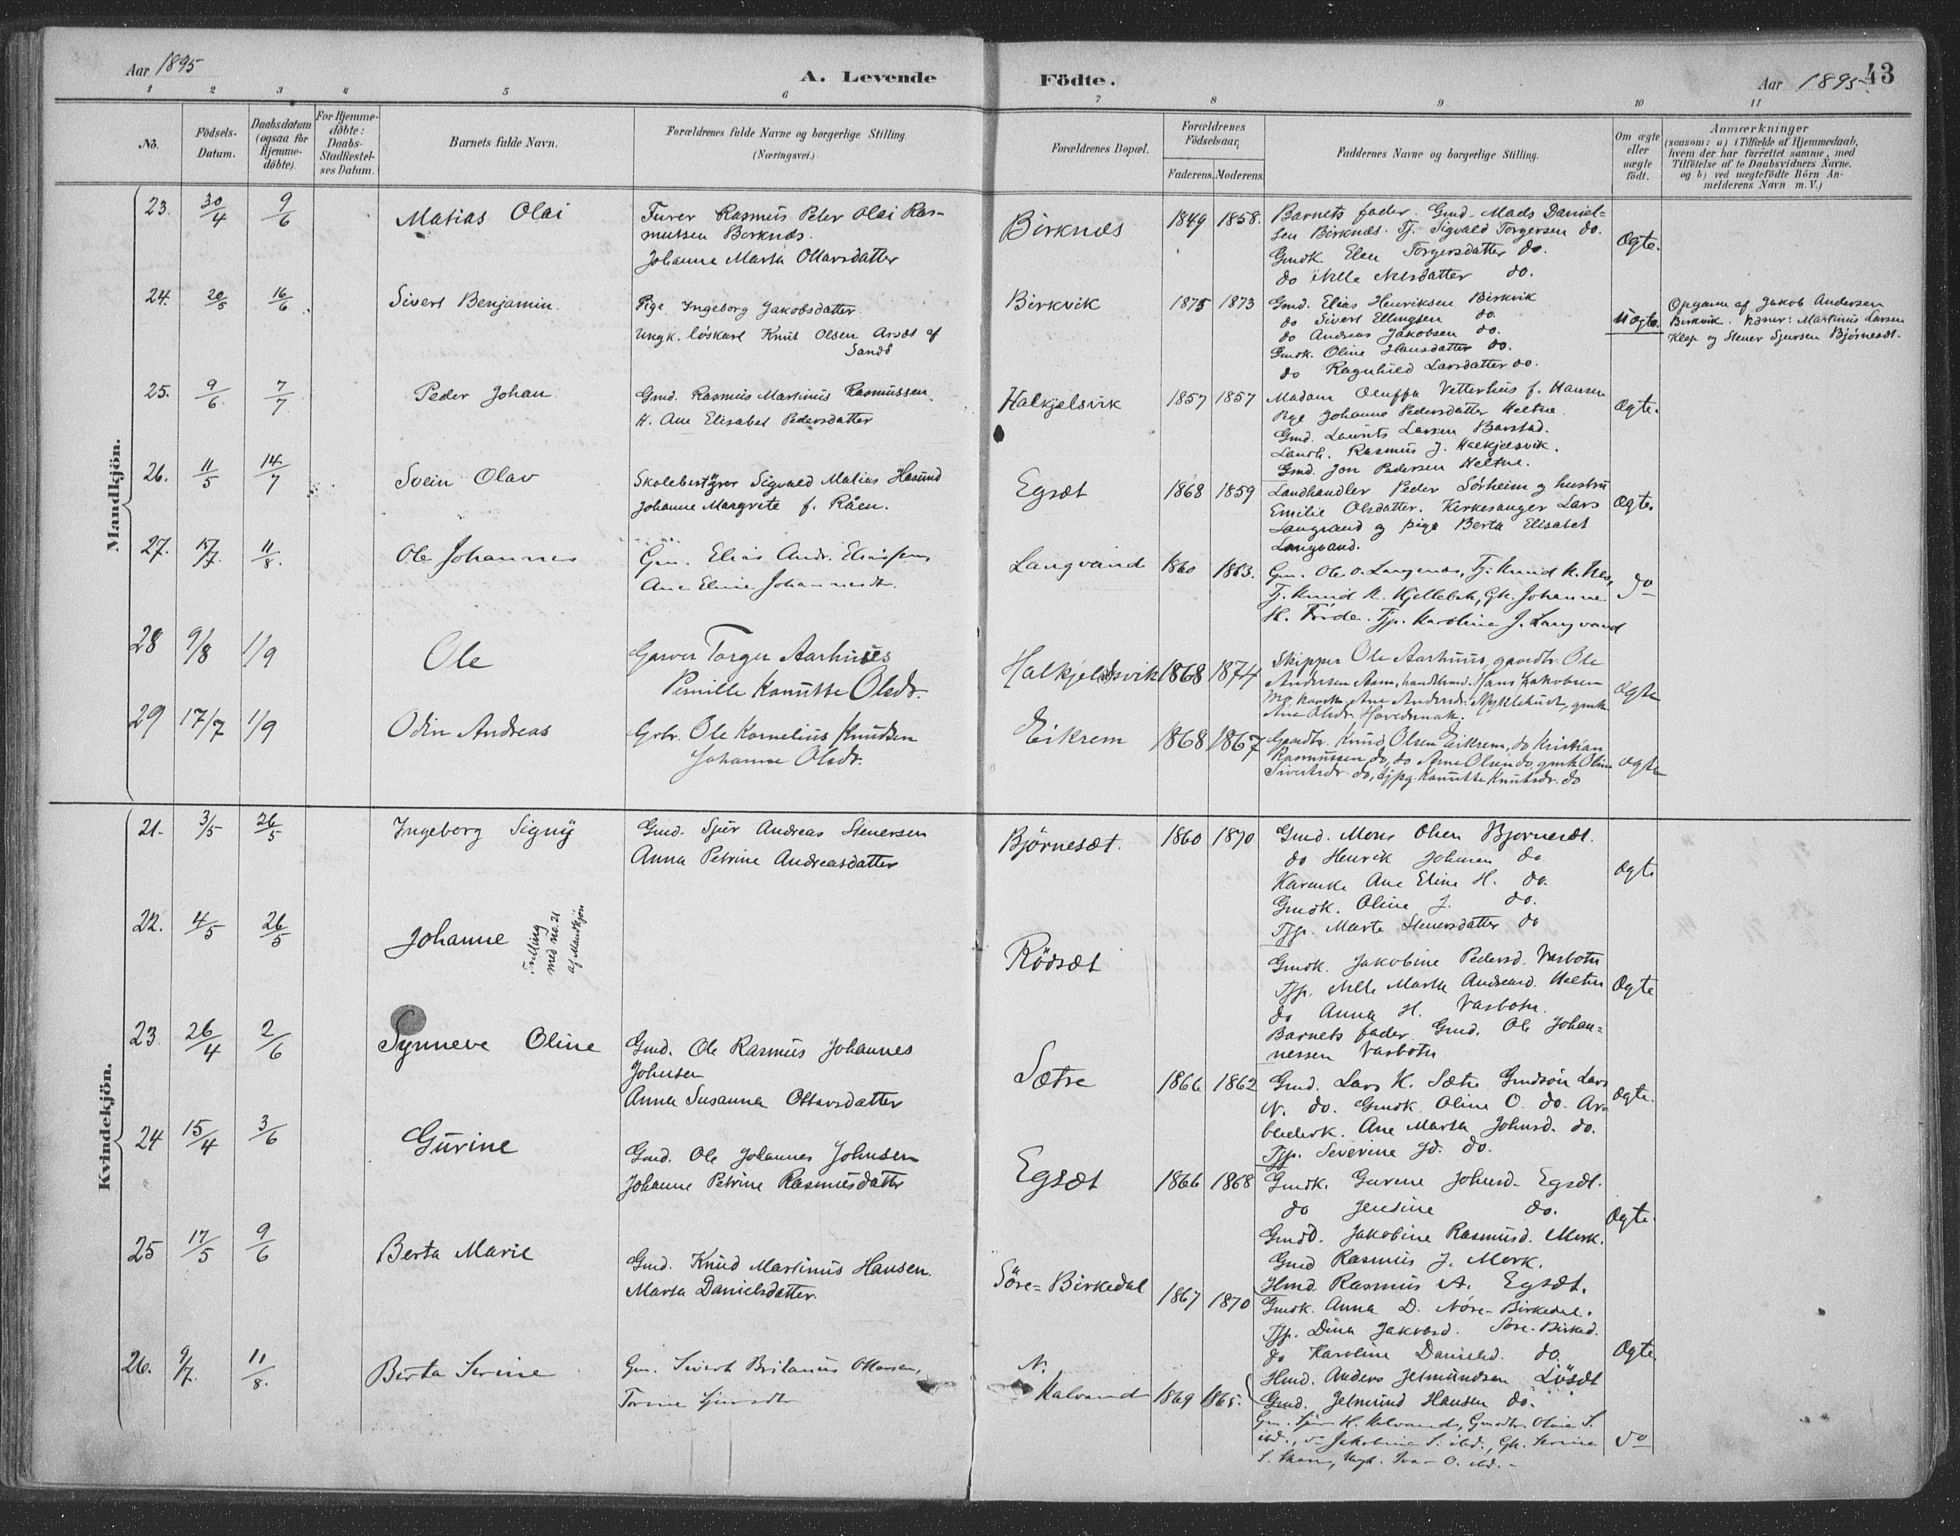 Aar 1895
A. Levende
Födte.
Aar 1895.
43
1 2 3 4 5 6 7 8 9 10 11
No.
Födsels-Datum.
Daabsdatum (ogsaa for Hjemme-döbte).
For Hjemme-döbte: Daabs-Stadfæstel-ses Datum.
Barnets fulde Navn.
Forældrenes fulde Navne og borgerlige Stilling. (Næringsvei.)
Forældrenes Bopæl.
Forældrenes Födselsaar,
Faderens. Moderens.
Faddernes Navne og borgerlige Stilling.
Om ægte eller uægte födt.
Anmærkninger
(saasom: a) i Tilfælde af Hjemmedaab, hvem der har forrettet samme, med Tilföielse af to Daabsvidners Navne, og b) ved uægtefödte Börn An-melderens Navn m. V.)
Mandkjön.
23. 30/4 9/6 Matias Olai
Furer Rasmus Peter Olai Ras-
mussen Birknes.
Johanne Marta Ottarsdatter
Birknes 1849 1858.
Barnets fader. Gmd. Mads Daniel-
sen Birknes. Tj. Sigvald Torgersen do.
Gmdk. Elen Torgersdatter do.
do Nille Nilsdatter do.
Ægte.
24. 20/5 16/6 Sivert Benjamin
Pige Ingeborg Jakobsdatter
Ungk. löskarl Knut Olsen Arsæt af
Sandö
Birkvik 1875 1873
Gmd. Elias Henriksen Birkvik
do Sivert Ellingsen do.
do Andreas Jakobsen do.
Gmdk. Oline Hansdatter do.
do Ragnhild Larsdatter do.
Uægte.
Opgivne af Jakob Andersen
Birkvik. Martinus Larsen
Klep og Stener Sjursen Bjørnesæt.
25. 9/6 7/7 Peder Johan
Gmd. Rasmus Martinus Rasmussen
H. Ane Elisabet Pedersdatter
Halkjelsvik 1857 1857
Madam Oluffa Vetterhus f. Hansen
Pige Johanne Pedersdatter Heltne.
Gmd. Laurits Larsen Barstad.
Landh. Rasmus J. Halkjelsvik.
Gmd. Jon Pedersen Heltne.
Ægte.
26. 11/5 14/7 Svein Olav
Skolebestyrer Sigvald Matias Hasund
Johanne Margrete f. Råen.
Egsæt 1868 1859
Landhandler Peder Sörheim og hustru
Emilie Olsdatter. Kirkesanger Lars
Langvand og pige Berta Elisabet
Langvand.
Ægte.
27. 17/7 11/8 Ole Johannes
Gm. Elias Andr. Eliassen
Ane Eline Johannesdt.
Langvand 1860 1863.
Gm. Ole O. Langenes, Tj. Knud K.
Tj. Knud R. Hjellebek, Gk. Johanne
H. Förde. Tjp. Karoline J. Langvand
do
28 9/8 1/9 Ole
Garver Torger Aarhuus
Pernille Knutte Olsdr.
Halkjelsvik 1868 1874
Skipper Ole Aarhuus, gaardbr. Ole
Andersen Aam, Hans Jakobsen
Ane Andersdr. Myklebust, gmk
Ane Olsdr. Hovdenak.
Ægte
29 17/7 1/9 Odin Andreas
Grbr. Ole Kornelius Knudsen
Johanne Olsdr.
Eikrem 1868 1867
Gaardbr. Knud Olsen Eikrem, do Kristian
Rasmussen do, do Arne Olsen do, gmk Oline
Sivertsdr. do, tjpg. Knutte Knutsdr. do
Ægte
Kvindekjön.
21. 3/5 26/5 Ingeborg Signy
Gmd. Sjur Andreas Stenersen
Anna Petrine Andreasdatter
Bjørnesæt. 1860 1870
Gmd. Mons Olsen Bjørnesæt.
do Henrik Johnsen do.
Ane Eline H. do.
Gmdk. Oline J. do.
Tjp. Marte Stenersdatter do
Ægte
22. 4/5 26/5 Johanne
Tvilling
med no. 21
af Mandkjøn
Rödsæt
Gmdk. Jakobine Pedersd. Vasbotn
Tjp. Nille Marta Andreasd. Heltne
do Anna H. Vasbotn.
Barnets fader. Gmd. Ole Johan-
nessen Vasbotn
Ægte
23 26/4 2/6 Synneve Oline
Gmd. Ole Rasmus Johannes
Johnsen
Anna Susanna Ottarsdatter
Sætre 1866 1862
Gmd. Lars K. Sætre Gmdsön Lars
N. do. Gmdk. Oline O. do. Ar-
beiderk. Ane Marta Johnsd. do.
Tjp. Severine Jd. do.
Ægte.
24 15/4 3/6 Gurine
Gmd. Ole Johannes Johnsen
Johanne Petrine Rasmusdatter
Egsæt 1866 1868
Gmdk. Gurine Johnsd. Egsæt.
do Jensine do.
Gmdd. Jakobine Rasmusd. Mork.
Gmd Rasmus J. Mork.
Hmd. Rasmus A. Egsæt.
Ægte.
25 17/5 9/6 Berta Marie
Gmd. Knud Martinus Hansen.
Marta Danielsdatter
Söre-Birkedal 1867 1870
Gmdk. Anna D. Nöre-Birkedal.
Tjp. Dina Jakobsd. Söre-Birked.
do Karoline Danielsd. do.
Hmd. Anders Jetmundsen Lösæt
Gmd. Jetmund Hansen do.
Ægte.
26. 9/7 11/8 Berta Serine
Gm. Sivert Britanus Ottersen,
Torine Sjursdt
N.
Kalvand 1869 1865.
Gm. Sjur K. Kalvand, Gmdtr. Oline S.
ibd., do Jakobine S. ibd., Gk. Serine
S. Ungk. Ivar O. ibd.
do